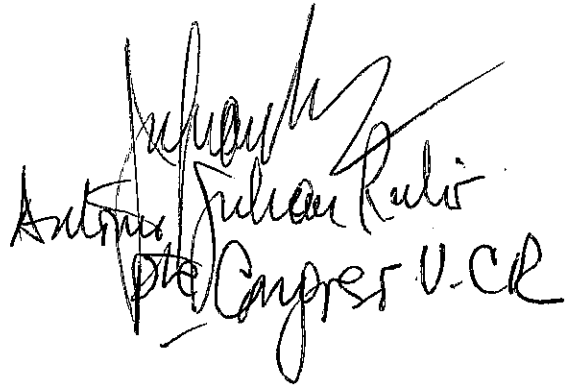 Antonio Julian Rubio
pte Congreso U.CR